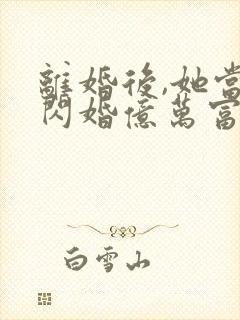 離婚後,她當
閃婚億萬富
白雪山